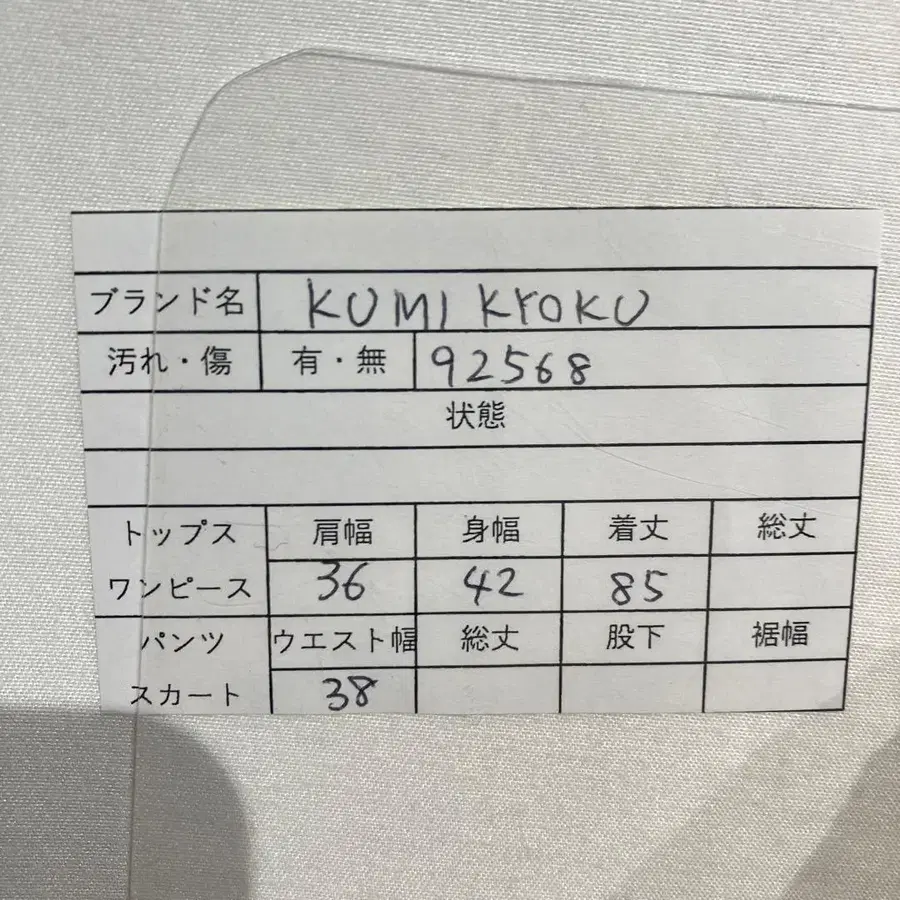 ブランド名 KUMI KYOKU
汚れ・傷 有・無 92568
状態
トップス 肩幅 身幅 着丈 総丈
ワンピース 36 42 85
パンツ ウエスト幅 総丈 股下 裾幅
スカート 38